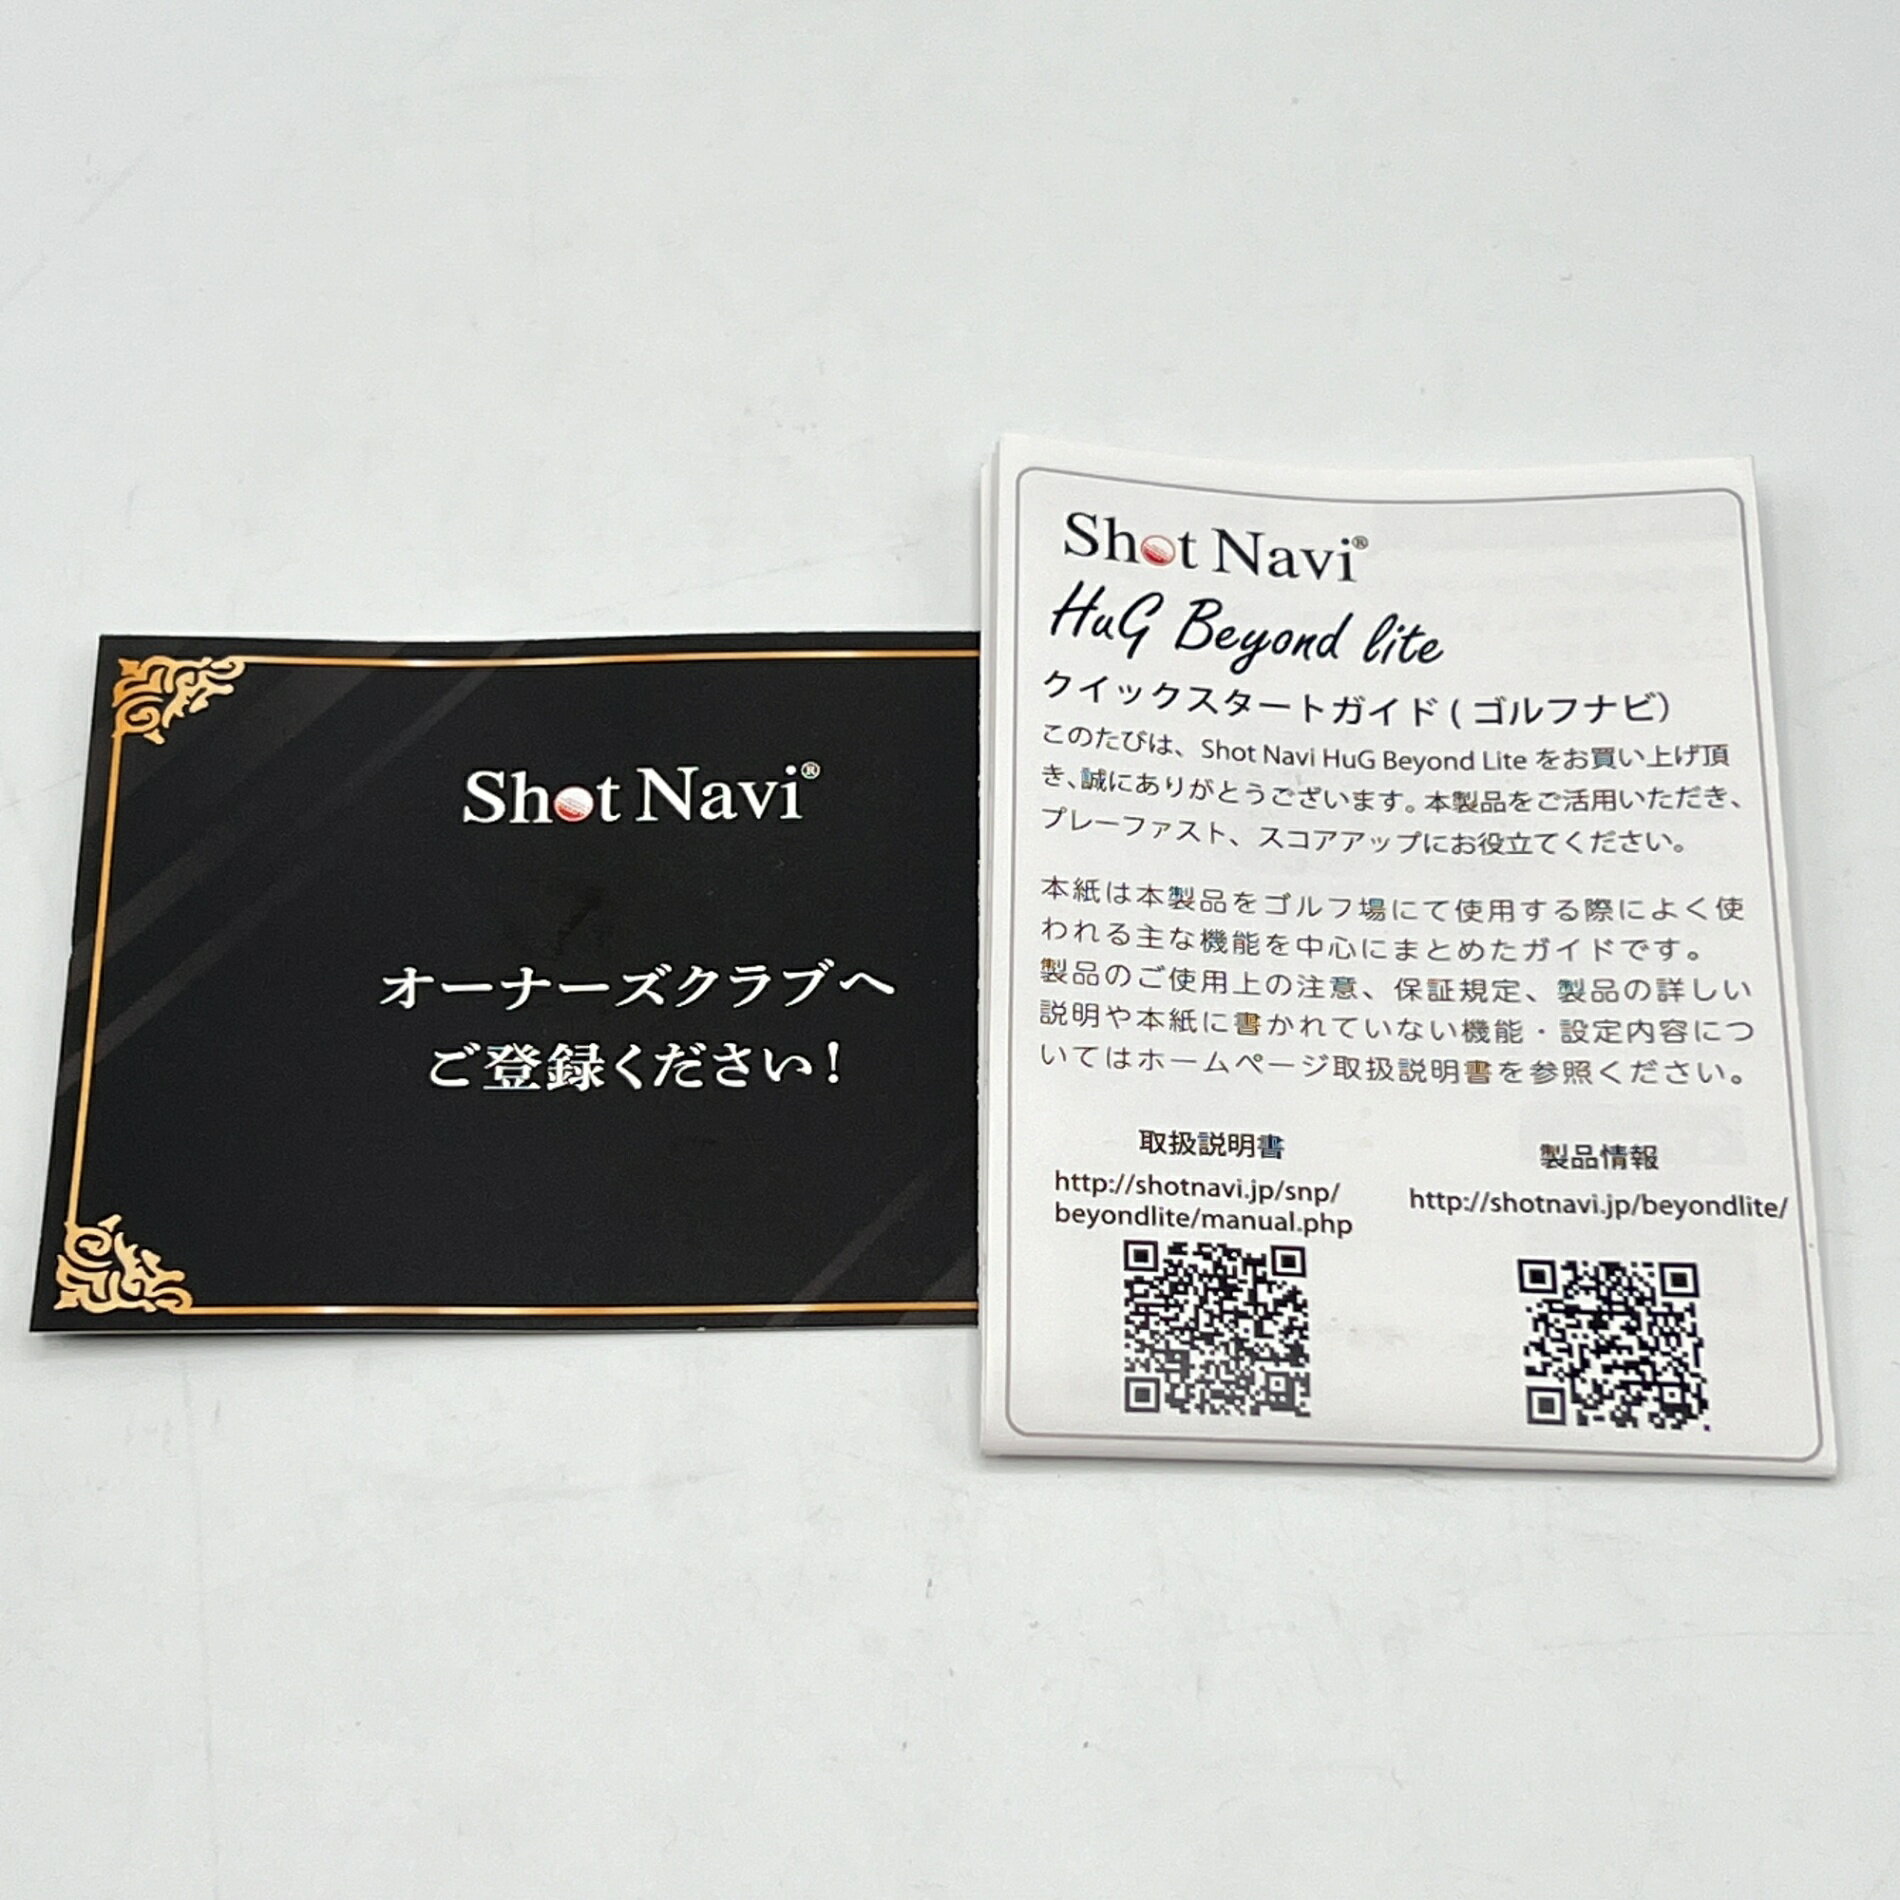 Shot Navi®
オーナーズクラブへ
ご登録ください!
Shot Navi®
HuG Beyond lite
クイックスタートガイド(ゴルフナビ)
このたびは、Shot Navi HuG Beyond Lite をお買い上げ頂
き、誠にありがとうございます。本製品をご活用いただき、
プレーファスト、スコアアップにお役立てください。
本紙は本製品をゴルフ場にて使用する際によく使
われる主な機能を中心にまとめたガイドです。
製品のご使用上の注意、保証規定、製品の詳しい
説明や本紙に書かれていない機能・設定内容につ
いてはホームページ取扱説明書を参照ください。
取扱説明書
http://shotnavi.jp/snp/
beyondlite/manual.php
製品情報
http://shotnavi.jp/beyondlite/